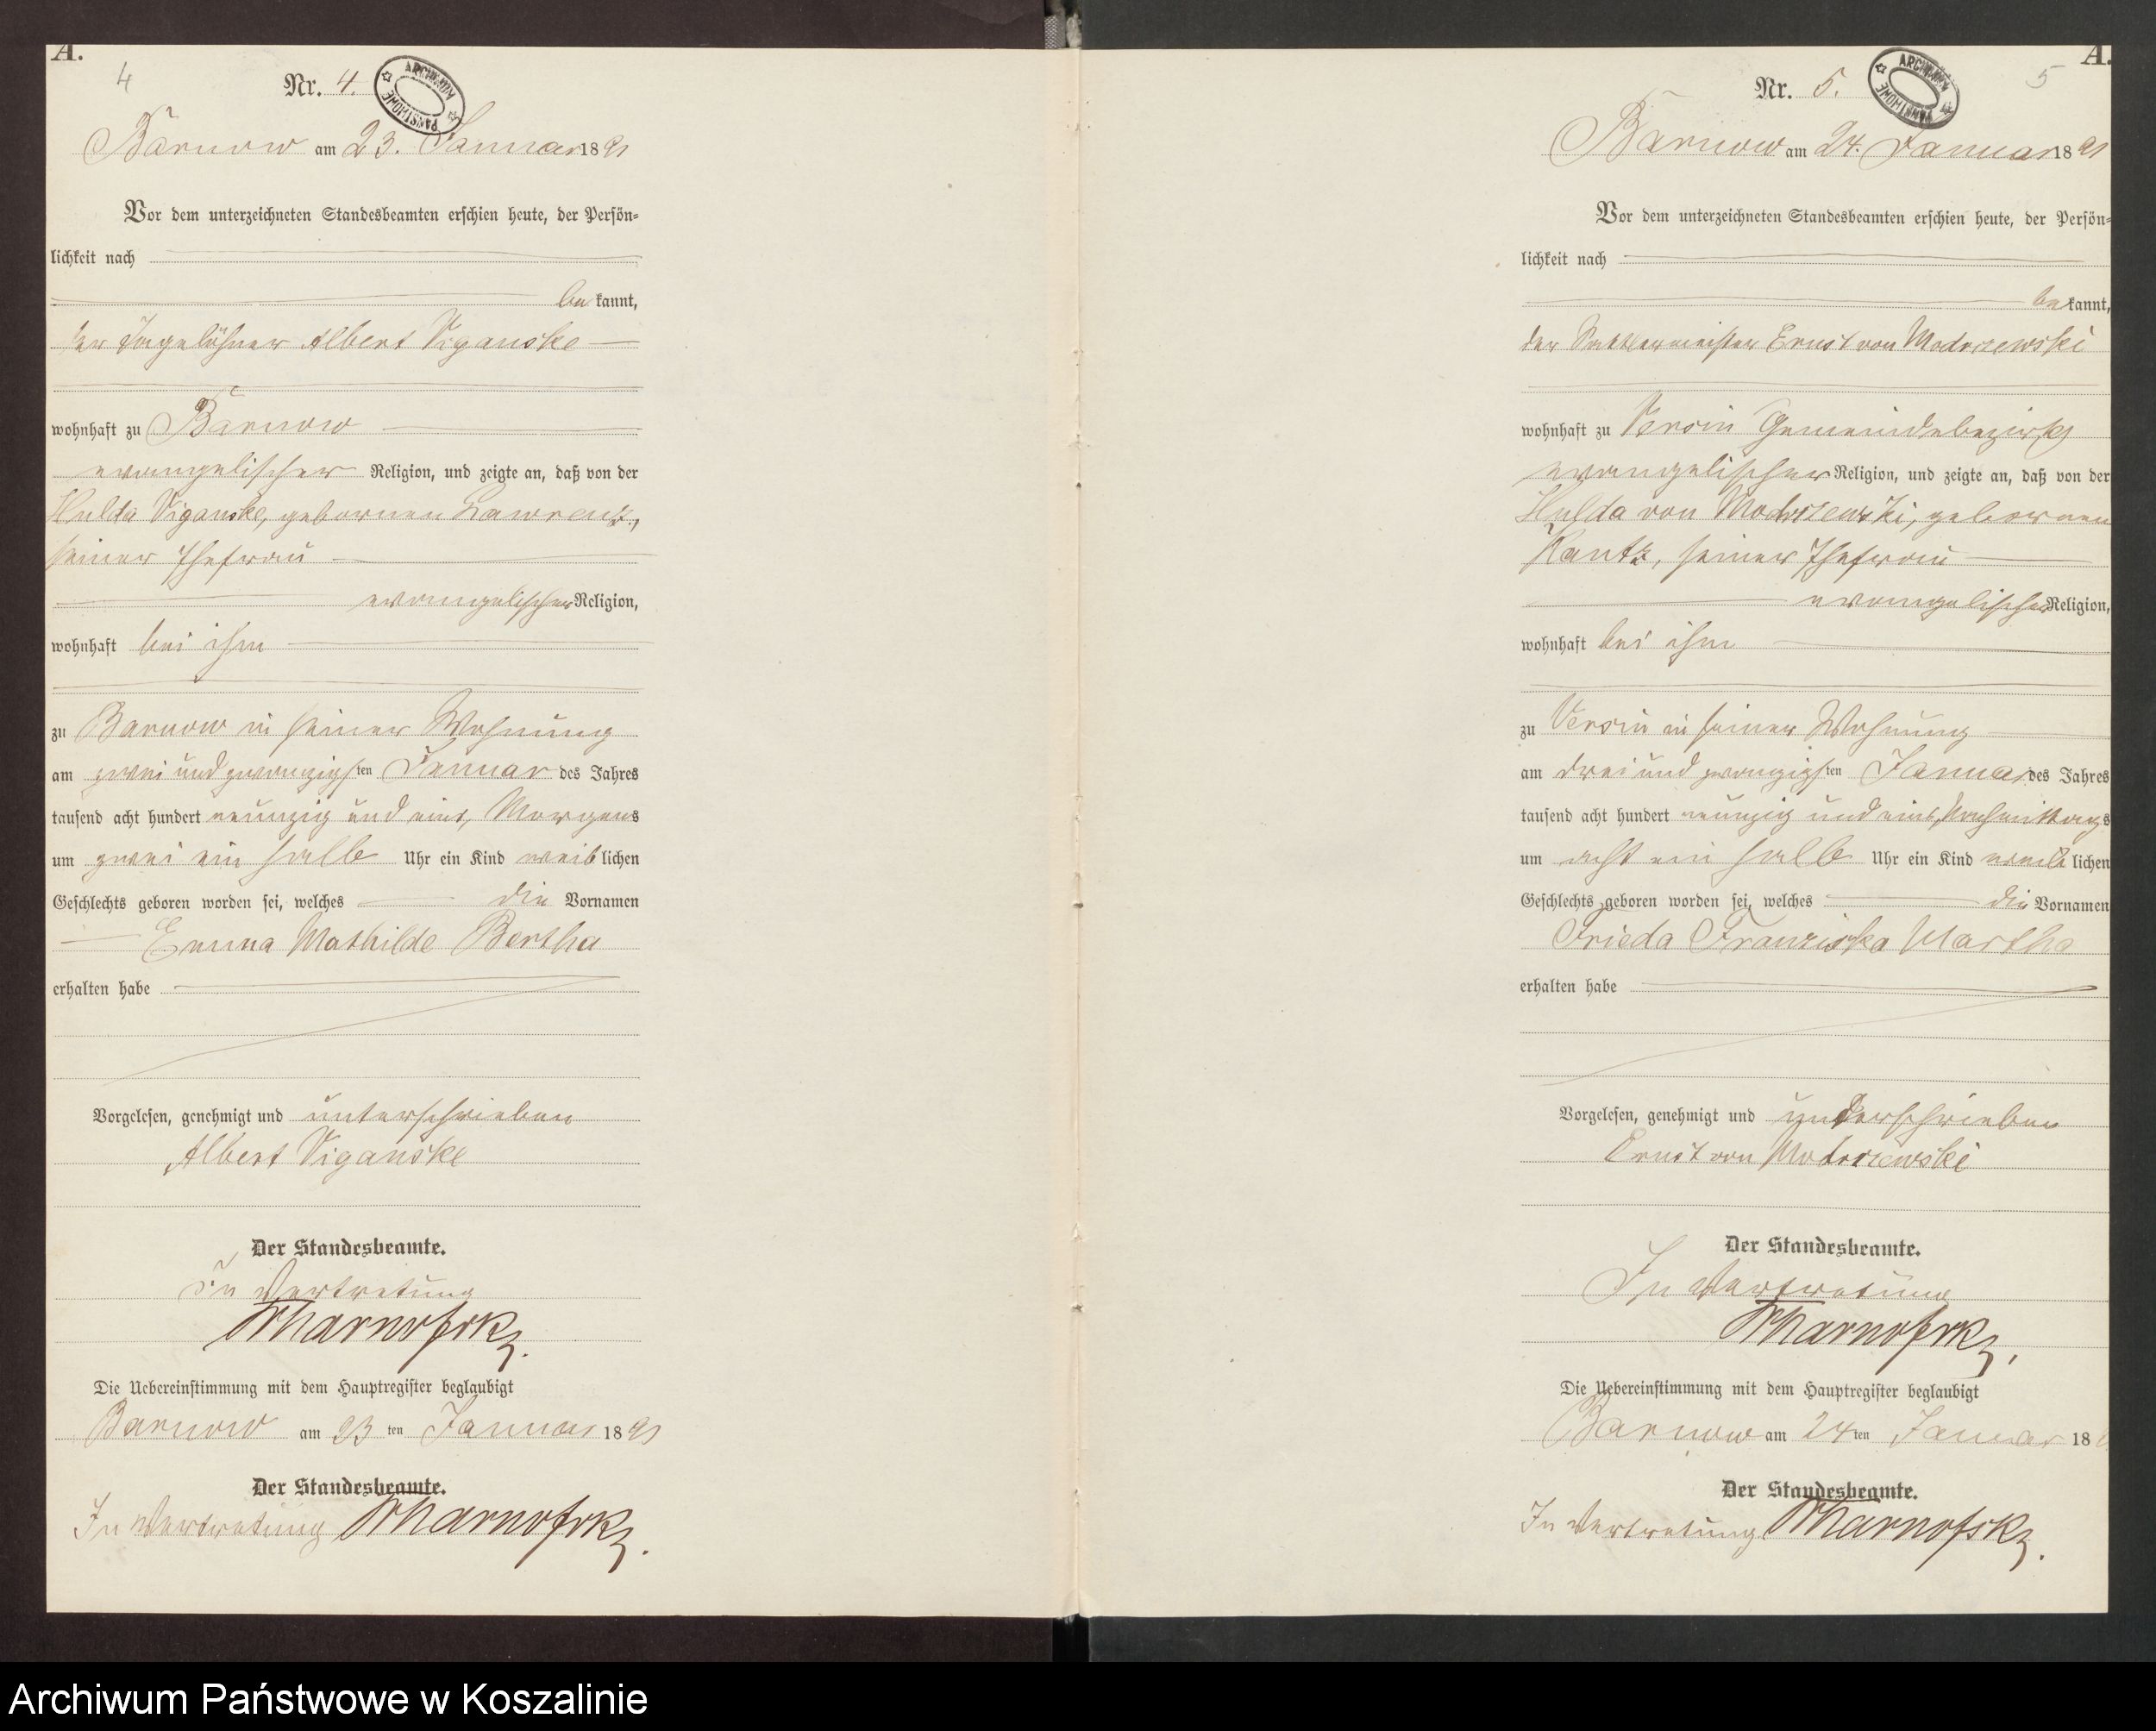 A.
4
Nr. 4.
ARCHIWUM PAŃSTWOWE
Barnow am 23. Januar 1891
Vor dem unterzeichneten Standesbeamten erschien heute, der Persön-
lichkeit nach
bekannt,
der Tagelöhner Albert Viganske
wohnhaft zu Barnow
evangelischer Religion, und zeigte an, daß von der
Hulda Viganske, gebornen Lawrenz,
seiner Ehefrau
evangelischer Religion,
wohnhaft bei ihm
zu Barnow in seiner Wohnung
am zwei und zwanzigsten Januar des Jahres
tausend acht hundert neunzig und eins, Morgens
um zwei ein halb Uhr ein Kind weiblichen
Geschlechts geboren worden sei, welches die Vornamen
Emma Mathilde Bertha
erhalten habe
Vorgelesen, genehmigt und unterschrieben
Albert Viganske
Der Standesbeamte.
In Vertretung
Die Uebereinstimmung mit dem Hauptregister beglaubigt
Barnow am 23 ten Januar 1891
Der Standesbeamte.
In Vertretung
A.
5
Nr. 5.
ARCHIWUM PAŃSTWOWE
Barnow am 24. Januar 1891
Vor dem unterzeichneten Standesbeamten erschien heute, der Persön-
lichkeit nach
bekannt,
der Sattlermeister Ernst von Modrzewski
wohnhaft zu Versin Gemeindebezirk
evangelischer Religion, und zeigte an, daß von der
Hulda von Modrzewski, gebornen
Kantz, seiner Ehefrau
evangelischer Religion,
wohnhaft bei ihm
zu Versin in seiner Wohnung
am drei und zwanzigsten Januar des Jahres
tausend acht hundert neunzig und eins, Nachmittags
um acht ein halb Uhr ein Kind weiblichen
Geschlechts geboren worden sei, welches die Vornamen
Frieda Franziska Martha
erhalten habe
Vorgelesen, genehmigt und unterschrieben
Ernst von Modrzewski
Der Standesbeamte.
In Vertretung
Die Uebereinstimmung mit dem Hauptregister beglaubigt
Barnow am 24 ten Januar 18
Der Standesbeamte.
In Vertretung
Archiwum Państwowe w Koszalinie